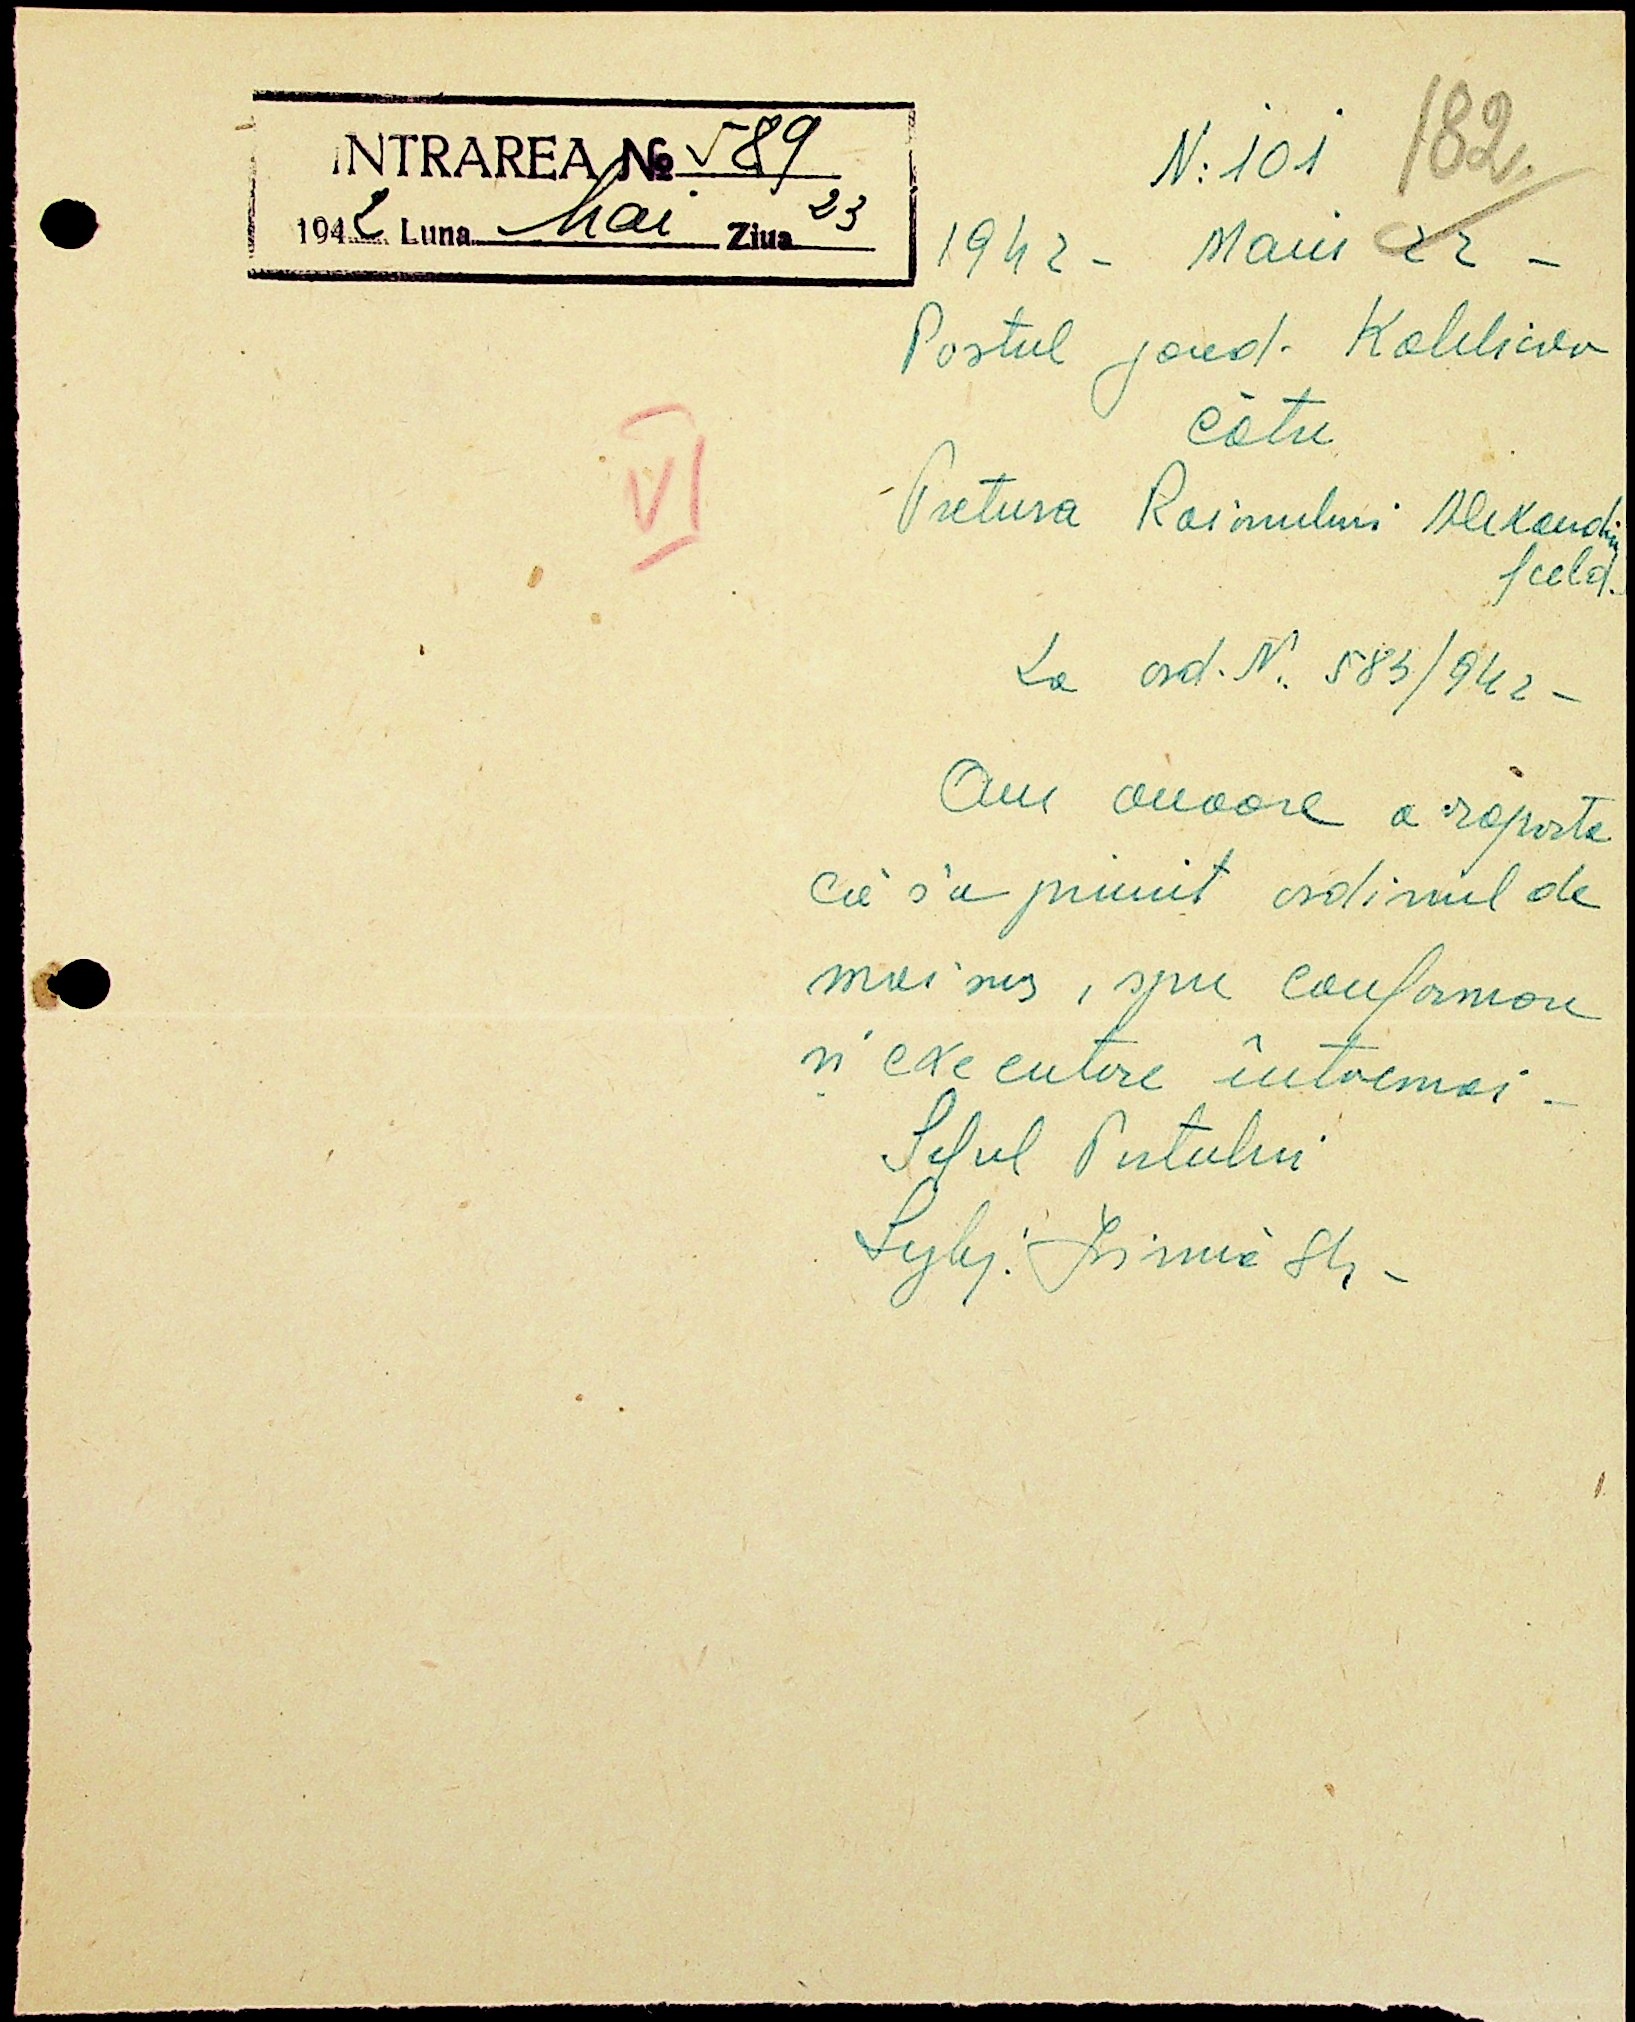 INTRAREA № 589
1942 Luna Mai Ziua 23
182.
N: 101
1942 - Maiu 22 -
Postul jand.
către
Pretura Raionului Alexandru
feeld.
VI
La ord. N: 583/942 -
Am onoare a raporta
că s'a primit ordinul de
mai sus, spre conformare
și executare întocmai -
Șeful Postului